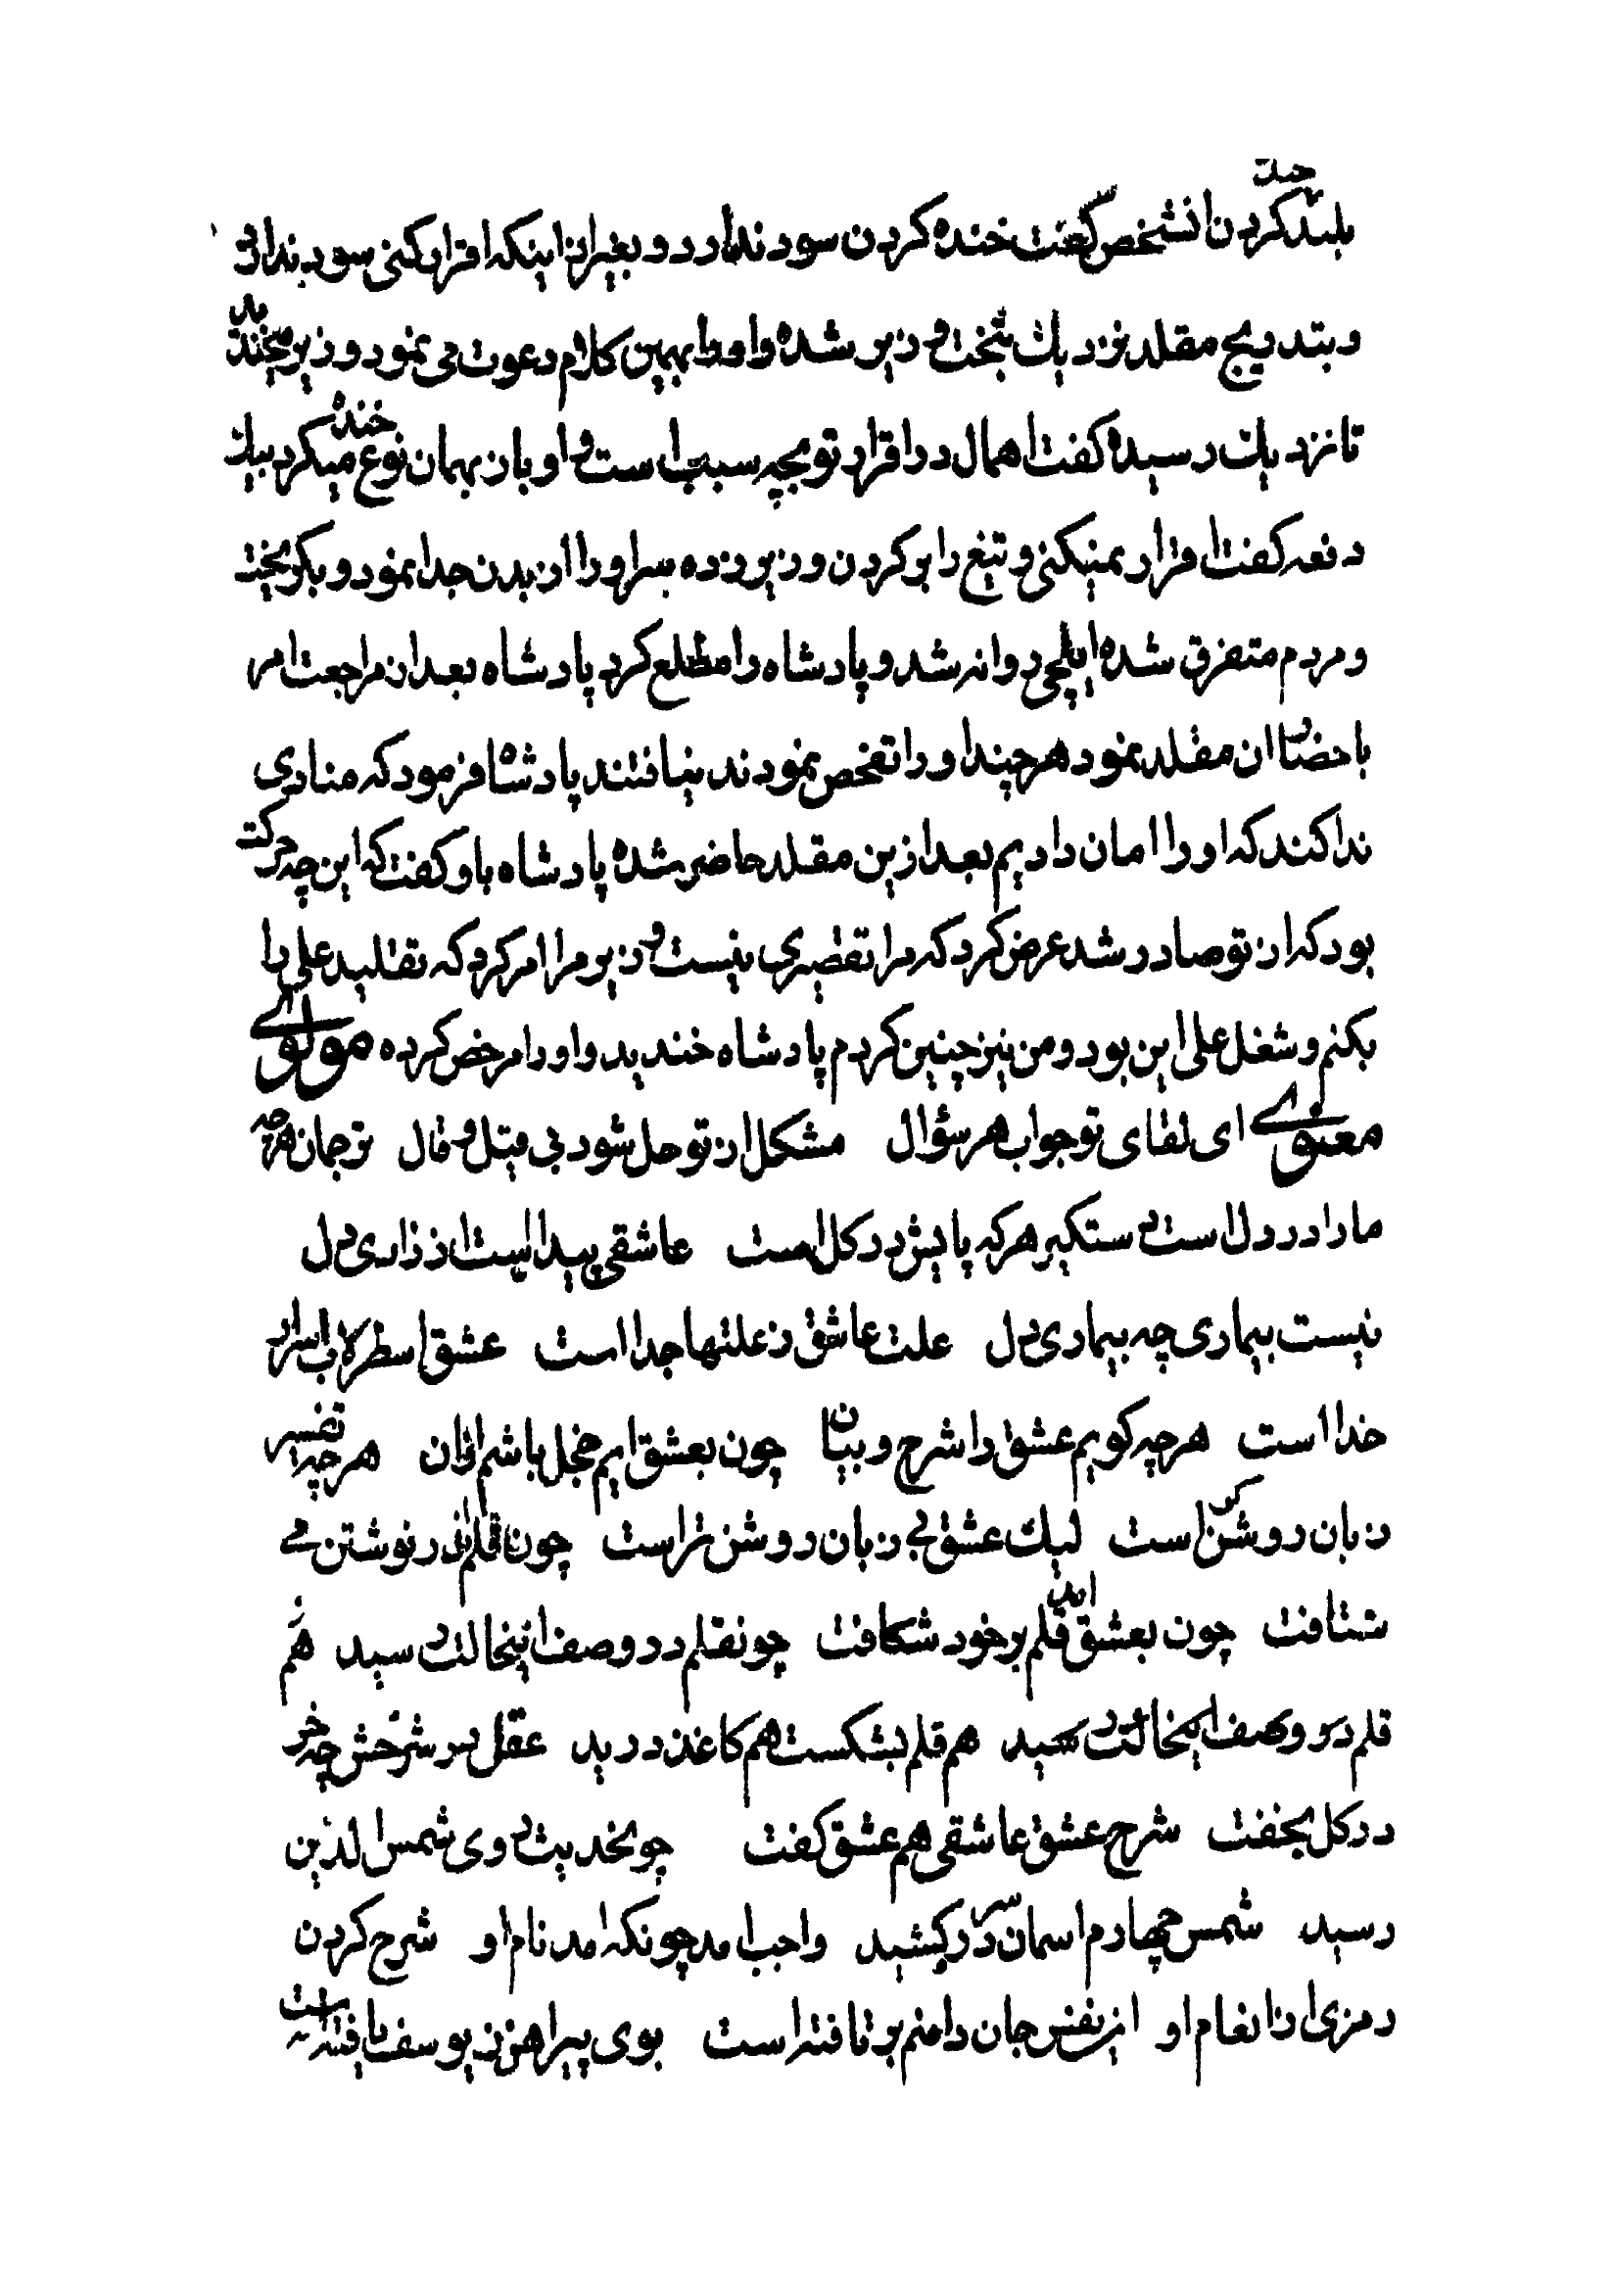 بلند کردن انشخص کفت خنده کردن سود ندارد و بغیر از اینکه اقرار کنی سود ندارد
و بتدریج مقلد نزدیك بتخت وزیر شده و او را بهمین کلام دعوت می نمود و وزیر میخندید
تا نزدیك رسیده کفت اهمال در اقرار تو بچه سبب است و او باز بهمان نوع خنده میکرد بیك
دفعه کفت اقرار نمیکنی و تیغ را بر کردن وزیر زده سر او را از بدن جدا نمود و بکریخت
و مردم متفرق شده ایلچی روانه شد و پادشاه را مطلع کرد پادشاه بعد از مراجعت امر
باحضار ان مقلد نمود هر چند او را تفحص نمودند نیافتند پادشاه فرمود که منادی
ندا کند که او را امان دادیم بعد ازین مقلد حاضر شده پادشاه باو کفت که این چه حرکت
بود که از تو صادر شد عرض کرد که مرا تقصیری نیست وزیر مرا امر کرد که تقلید علی را
بکنم و شغل علی این بود و من نیز چنین کردم پادشاه خندید و او را مرخص کرده مولوی
معنوی ای لقای تو جواب هر سؤال مشکل از تو حل شود بی قیل و قال ترجمان هرچه
ما را در دل است دستکیر هرکه پایش در کل است عاشقی پیداست از زاری دل
نیست بیماری چه بیماری دل علت عاشق ز علتها جدا است عشق اسطرلاب اسرار
خدا است هرچه کویم عشق را شرح و بیان چون بعشق ایم خجل باشم از ان هرچه تفسیر
زبان روشن کر است لیك عشق بی زبان روشن تر است چون قلم اندر نوشتن می
شتافت چون بعشق امد قلم بر خود شکافت چونقلم در وصف اینحالت رسید هم
قلم در وصف اینحالت رسید هم قلم بشکست هم کاغذ درید عقل در شرحش چه خر
در کل بخفت شرح عشق عاشقی هم عشق کفت چونحدیث روی شمس الدین
رسید شمس چهارم اسمان سر در کشید واجب امد چونکه امد نام او شرح کردن
رمزی از انعام او این نفس جان دامنم برتافته است بوی پیراهن ز یوسف یافته است